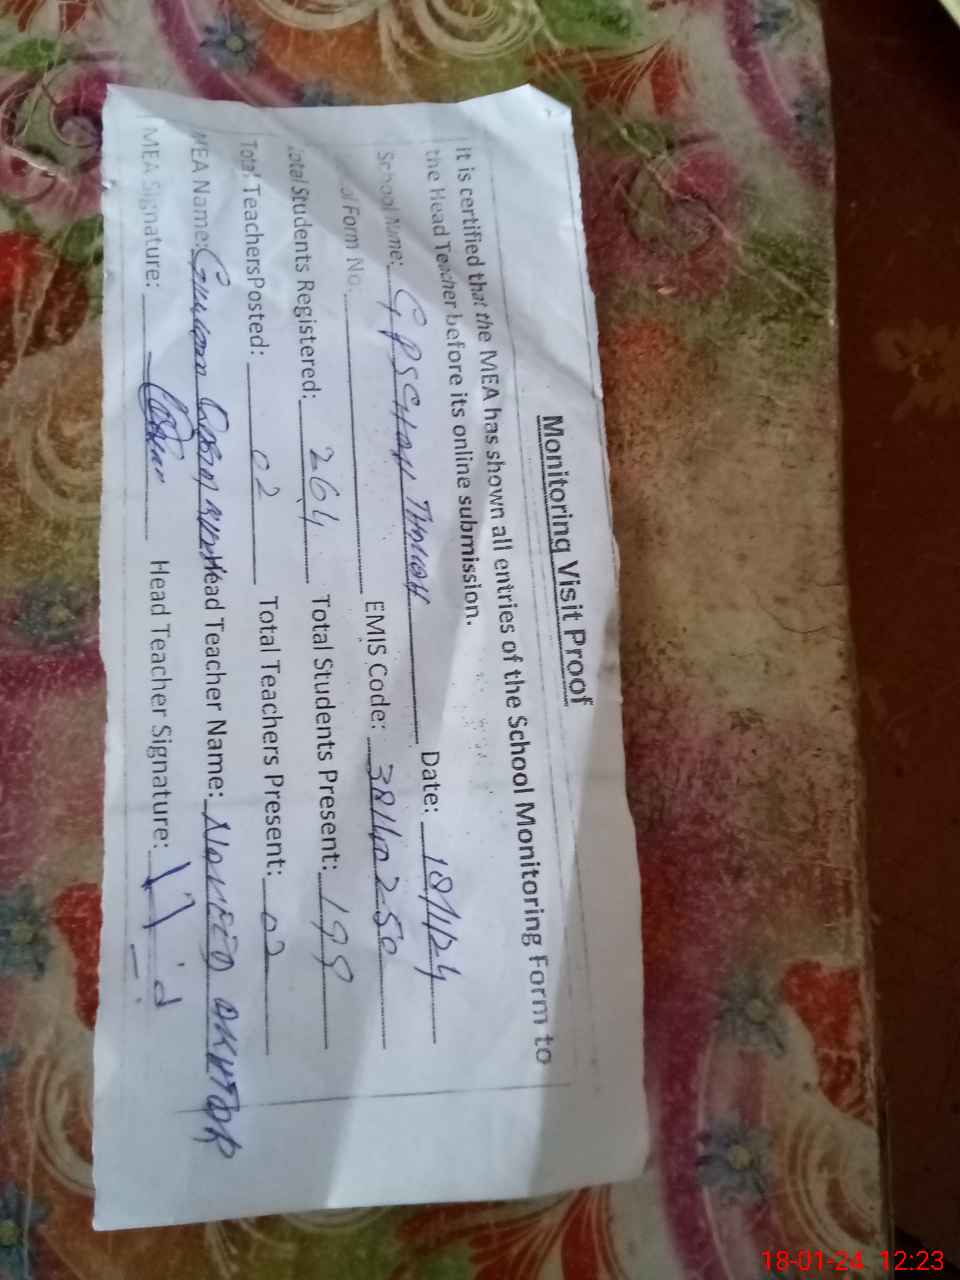 Monitoring Visit Proof
It is certified that the MEA has shown all entries of the School Monitoring Form to
the Head Teacher before its online submission.
School Name: GPS CHAH Date: 18/1/24
Form No. EMIS Code:
Total Students Registered: 264 Total Students Present: 199
Total TeachersPosted: 02 Total Teachers Present: 02
MEA Name: Head Teacher Name: NAVEED AKHTAR
MEA Signature: Head Teacher Signature:
18-01-24 12:23